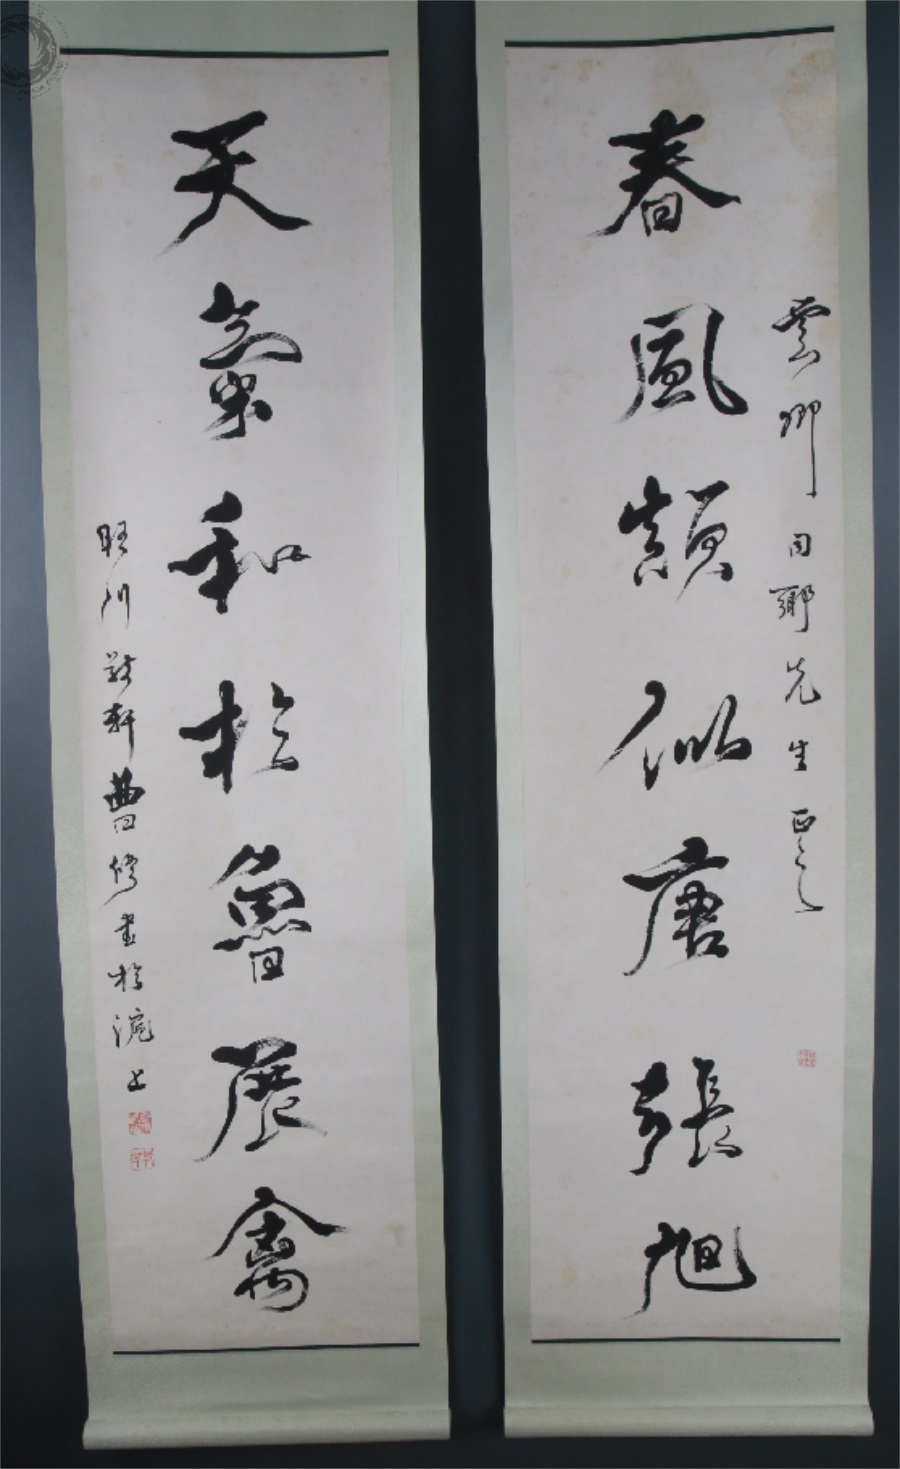 雲卿同鄉先生正之
春風顛似唐張旭
天氣和於魯展禽
旺川 軒曹 書於滬上